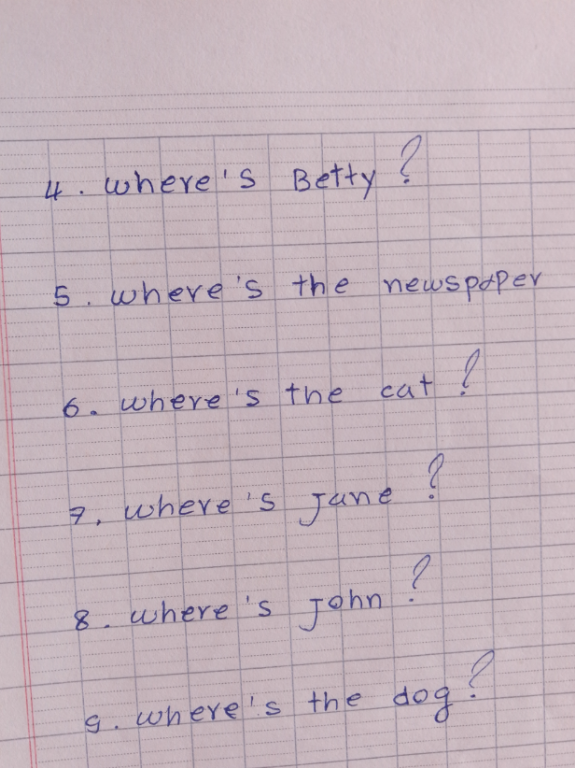 4. where's Betty ?
5. where's the newspaper
6. where's the cat ?
7. where's Jane ?
8. where's John ?
9. where's the dog ?